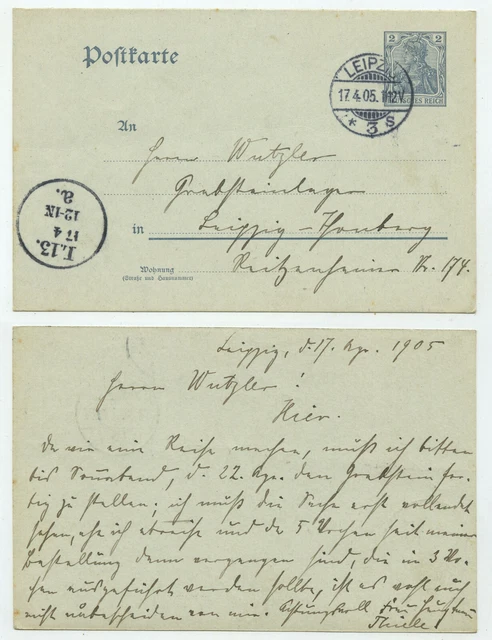 Postkarte
2 2
DEUTSCHES REICH
LEIPZIG
17.4.05. 11-12V.
* 3 S
An
Herrn Wutzler
Grabsteinlager
in Leipzig-Thonberg
Reitzenhainer Str. 174.
Wohnung
(Straße und Hausnummer)
L.13.
17 4
12-1N
a.
Leipzig, d. 17. Apr. 1905
Herrn Wutzler!
Hier.
Da wir eine Reise machen, muß ich bitten
bis Sonnabend, d. 22. Apr. den Grabstein fer-
tig zu stellen; ich muß die Sache erst vollendet
sehen, ehe ich abreise und da 5 Wochen seit meiner
Bestellung dann vergangen sind, die in 3 Wo-
chen ausgeführt werden sollte, ist es wohl auch
nicht unbescheiden von mir. Achtungsvoll Frau
Thiele